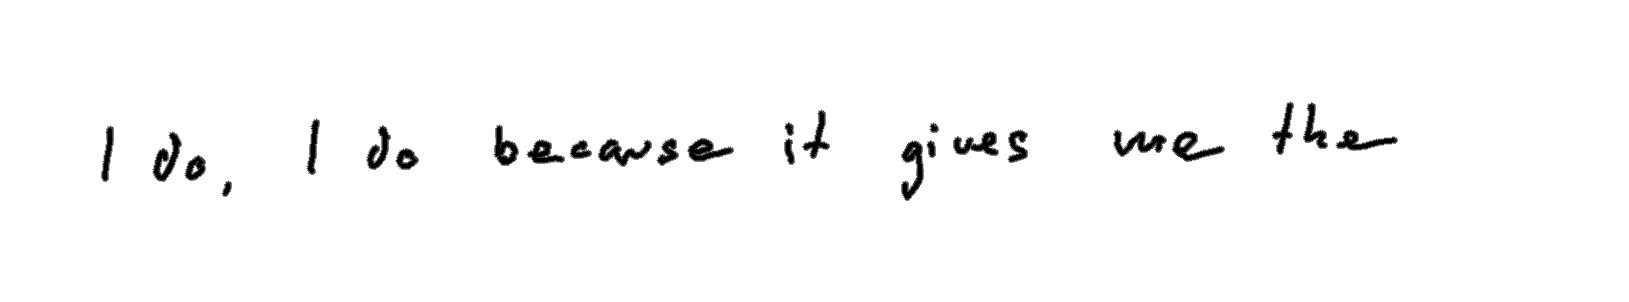 I do, I do because it gives me the